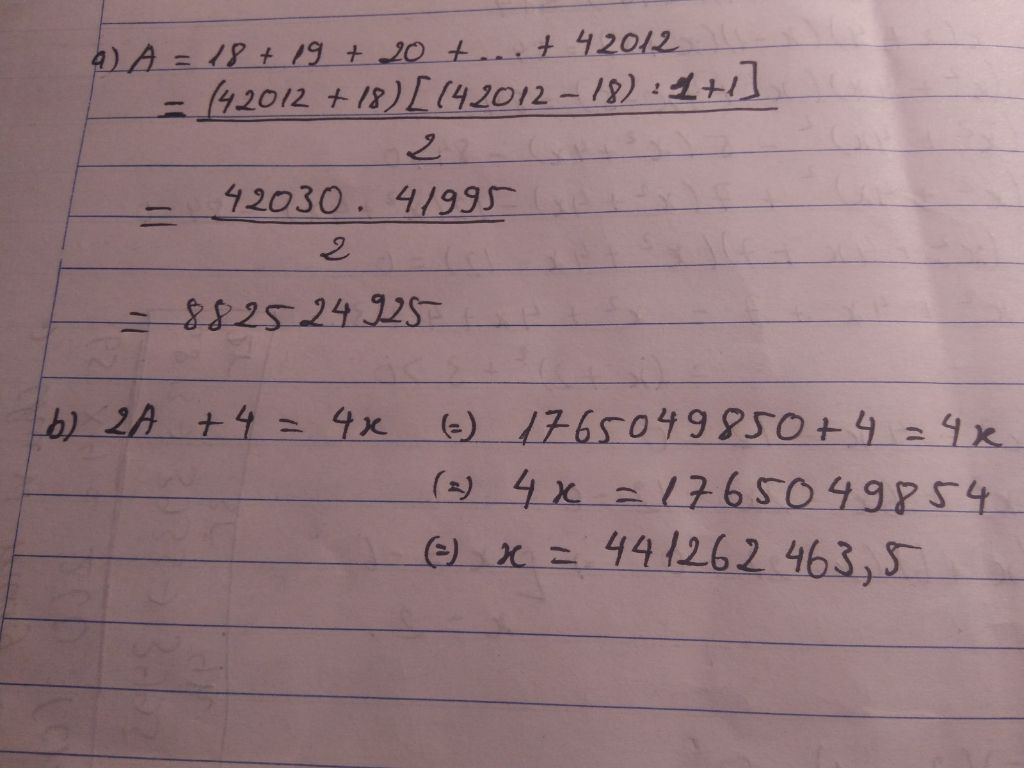 a) A = 18 + 19 + 20 + ... + 42012
= (42012 + 18) [(42012 - 18) : 1 + 1]
2
= 42030 . 41995
2
= 882524925
b) 2A + 4 = 4x (=) 1765049850 + 4 = 4x
(=) 4x = 1765049854
(=) x = 441262463,5